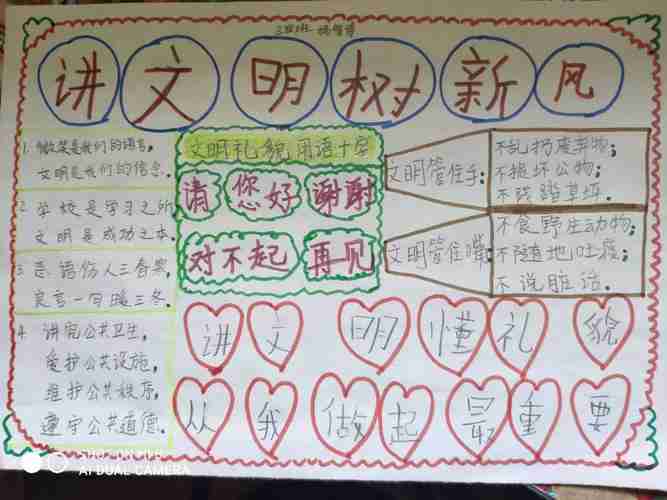 讲文明树新风
1. 微笑是我们的语言，
文明是我们的信念.
2. 学校是学习之所
文明是成功之本.
3 恶语伤人三春寒，
良言一句暖三冬.
4. 讲究公共卫生，
爱护公共设施，
维护公共秩序，
遵守公共道德.
文明礼貌用语十字
请 您好 谢谢
对不起 再见
文明管住手：
不乱扔废弃物；
不损坏公物；
不践踏草坪.
文明管住嘴：
不食野生动物；
不随地吐痰；
不说脏话.
讲文明懂礼貌
从我做起最重要
AI DUAL CAMERA